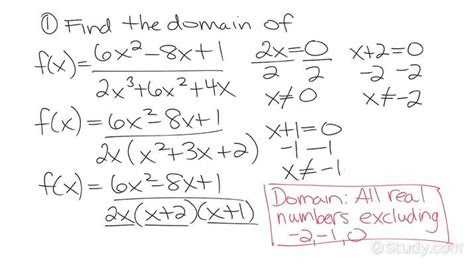 ① Find the domain of
f(x) = 6x²-8x+1 / 2x³+6x²+4x
f(x) = 6x²-8x+1 / 2x(x²+3x+2)
f(x) = 6x²-8x+1 / 2x(x+2)(x+1)
2x=0
2 2
x≠0
x+2=0
-2 -2
x≠-2
x+1=0
-1 -1
x≠-1
Domain: All real
numbers excluding
-2,-1,0
Study.com